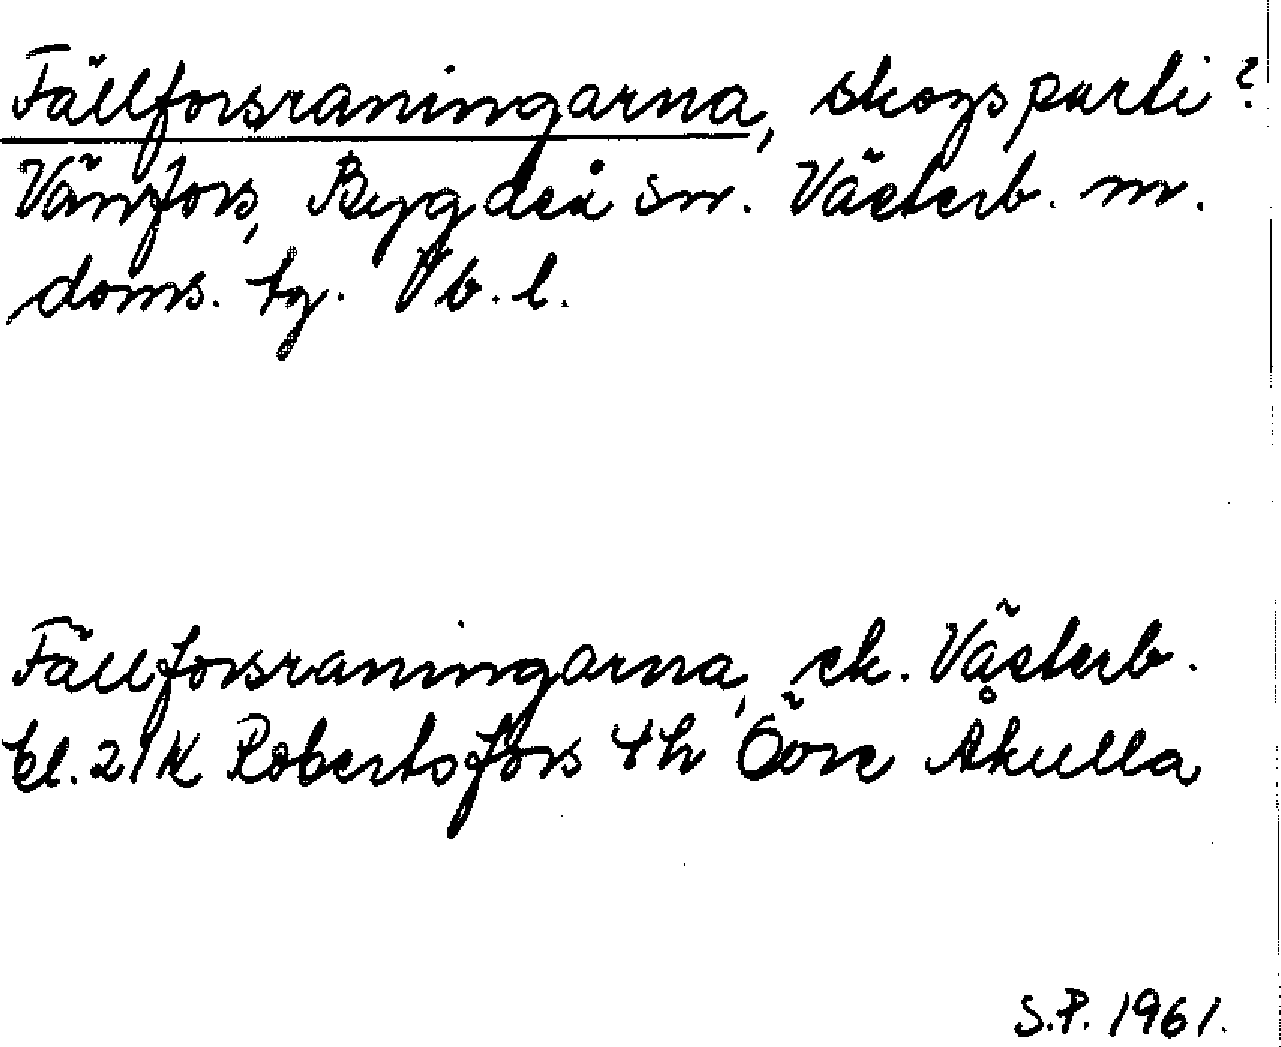 Fällforsraningarna, skogsparti?
Vänfors, Bygdeå sn. Västerb. m.
doms. tg. Vb. l.
Fällforsraningarna, ek. Västerb.
bl. 21K Robertsfors 4h Övre Åkulla
S.P. 1961.